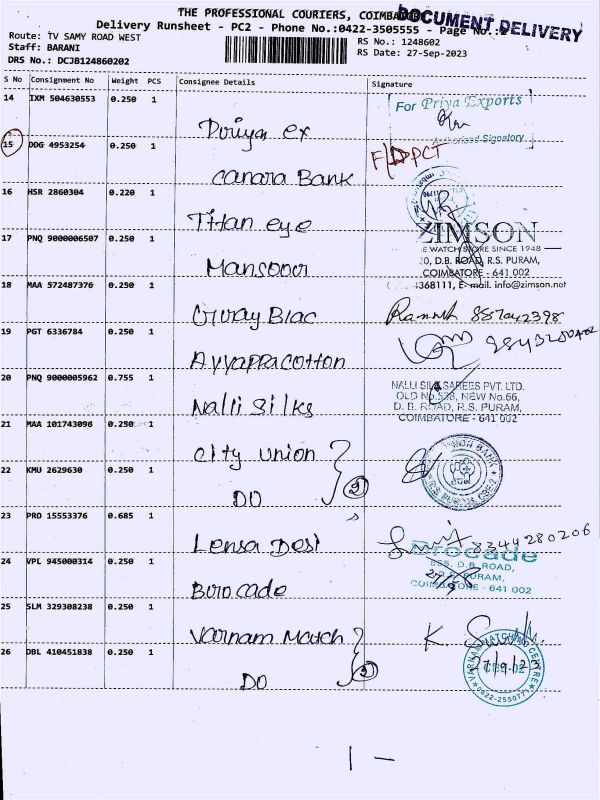 THE PROFESSIONAL COURIERS, COIMBA
DOCUMENT DELIVERY
Delivery Runsheet - PC2 - Phone No.:0422-3505555 - Page No.:2
Route: TV SAMY ROAD WEST
RS No.: 1248602
Staff: BARANI
RS Date: 27-Sep-2023
DRS No.: DCJB124860202
S No Consignment No Weight PCS Consignee Details Signature
14 IXM 504630553 0.250 1
For Priya Exports
Authorised Signatory
Priya Ex
15 DDG 4953254 0.250 1
Canara Bank
16 HSR 2860304 0.220 1
Titan eye
ZIMSON
THE WATCH STORE SINCE 1948
D.B. ROAD, R.S. PURAM,
COIMBATORE - 641 002
4368111, E-mail. info@zimson.net
17 PNQ 9000006507 0.250 1
Mansoor
18 MAA 572487376 0.250 1
19 PGT 6336784 0.250 1
Ayyappa cotton
20 PNQ 9000005962 0.755 1
Nalli Silks
NALLI SILK SAREES PVT. LTD.
OLD No.538, NEW No.66,
D. B. ROAD, R.S. PURAM,
COIMBATORE - 641 002
21 MAA 101743098 0.250 1
City Union
22 KMU 2629630 0.250 1
DO
2
23 PRO 15553376 0.685 1
Lensa Desi
8344280206
24 VPL 945000314 0.250 1
Brocade
Brocade
D.B. ROAD,
R.S. PURAM,
COIMBATORE - 641 002
25 SLM 329308238 0.250 1
Varnam Match
26 DBL 410451838 0.250 1
DO
K
27/9/23
VARNAM MATCHING CENTRE
CBE-02
1 -